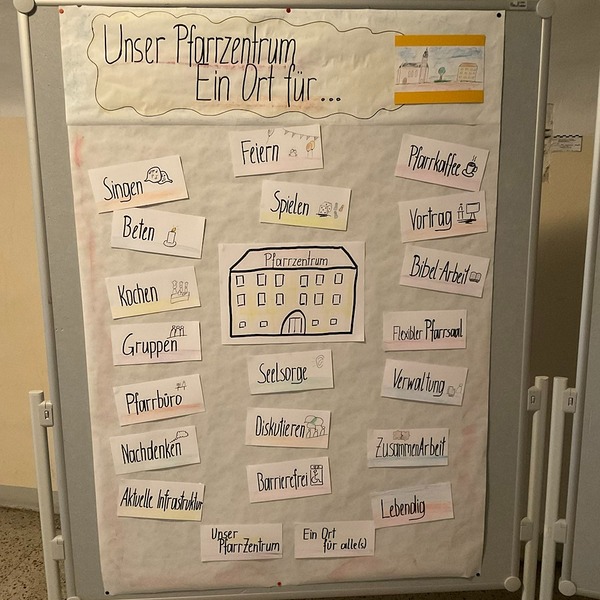 Unser Pfarrzentrum
Ein Ort für...
Singen
Beten
Kochen
Gruppen
Pfarrbüro
Nachdenken
Aktuelle Infrastruktur
Feiern
Spielen
Pfarrzentrum
Seelsorge
Diskutieren
Barrierefrei
Pfarrkaffee
Vortrag
Bibel-Arbeit
Flexibler Pfarrsaal
Verwaltung
ZusammenArbeit
Lebendig
Unser
PfarrZentrum
Ein Ort
für alle(s)